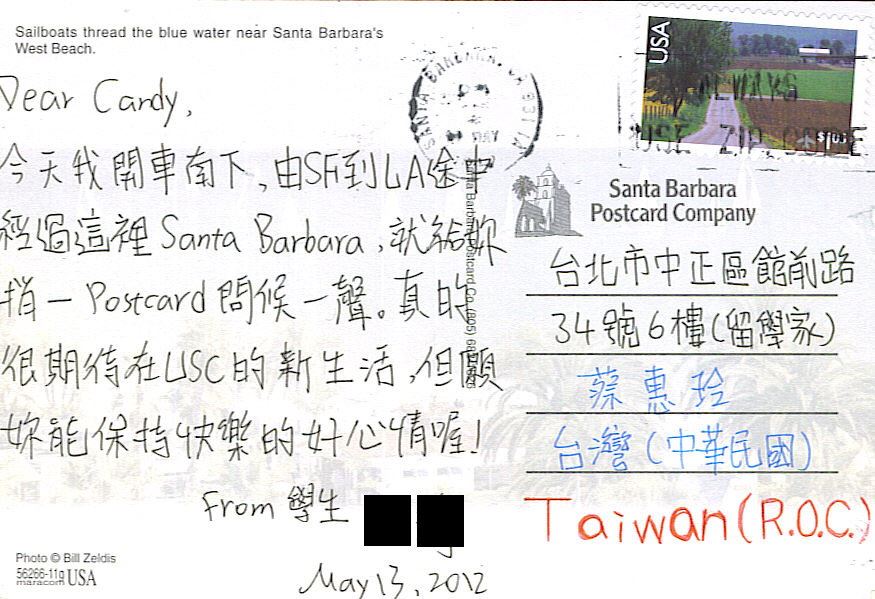 Sailboats thread the blue water near Santa Barbara's
West Beach.
Dear Candy,
今天我開車南下,由SF到LA途中
經過這裡Santa Barbara,就給妳
捎一Postcard問候一聲。真的
很期待在USC的新生活,但願
妳能保持快樂的好心情喔!
From 學生
May 13, 2012
Photo © Bill Zeldis
56266-11g
maracom USA
Santa Barbara Postcard Co. (805)
SANTA BARBARA, CA 931
MAY
USA
$1.00
ALWAYS
USE ZIP CODE
Santa Barbara
Postcard Company
台北市中正區館前路
34號6樓(留學家)
蔡惠玲
台灣(中華民國)
Taiwan(R.O.C.)